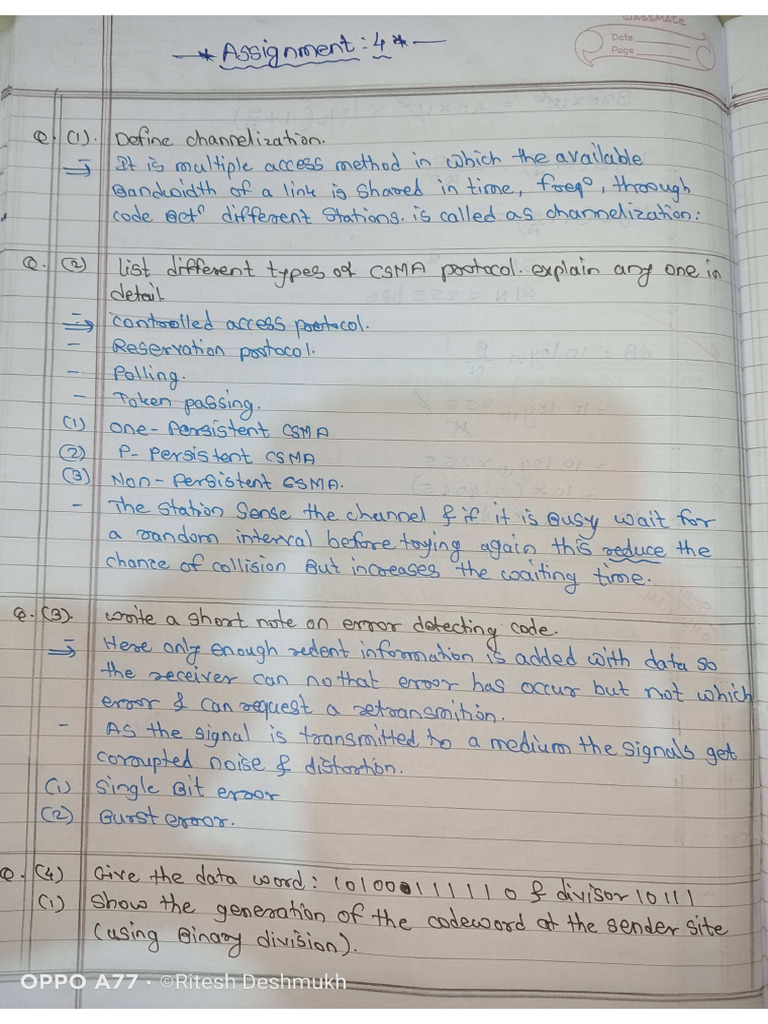 CLASSMATE
Date
Page
Assignment: 4
Q. (1). Define channelization.
⇒ It is multiple access method in which the available
Bandwidth of a link is shared in time, freqⁿ, through
code Betⁿ different stations. is called as channelization:
Q. (2) List different types of CSMA protocol. explain any one in
detail.
⇒ controlled access protocol.
- Reservation protocol.
- Polling.
- Token passing.
(1) one-Persistent CSMA
(2) P-Persistent CSMA
(3) Non-Persistent CSMA.
- The station sense the channel & if it is Busy wait for
a random interval before trying again this reduce the
chance of collision But increases the waiting time.
Q. (3). write a short note on error detecting code.
⇒ Here only enough redent information is added with data so
the receiver can no that error has occur but not which
error & can request a retransmition.
- As the signal is transmitted to a medium the signals get
corrupted noise & distortion.
(1) Single Bit error
(2) Burst error.
Q. (4) Give the data word: 10100111110 & divisor 10111
(1) Show the generation of the codeword at the sender site
(using Binary division).
OPPO A77 · ©Ritesh Deshmukh